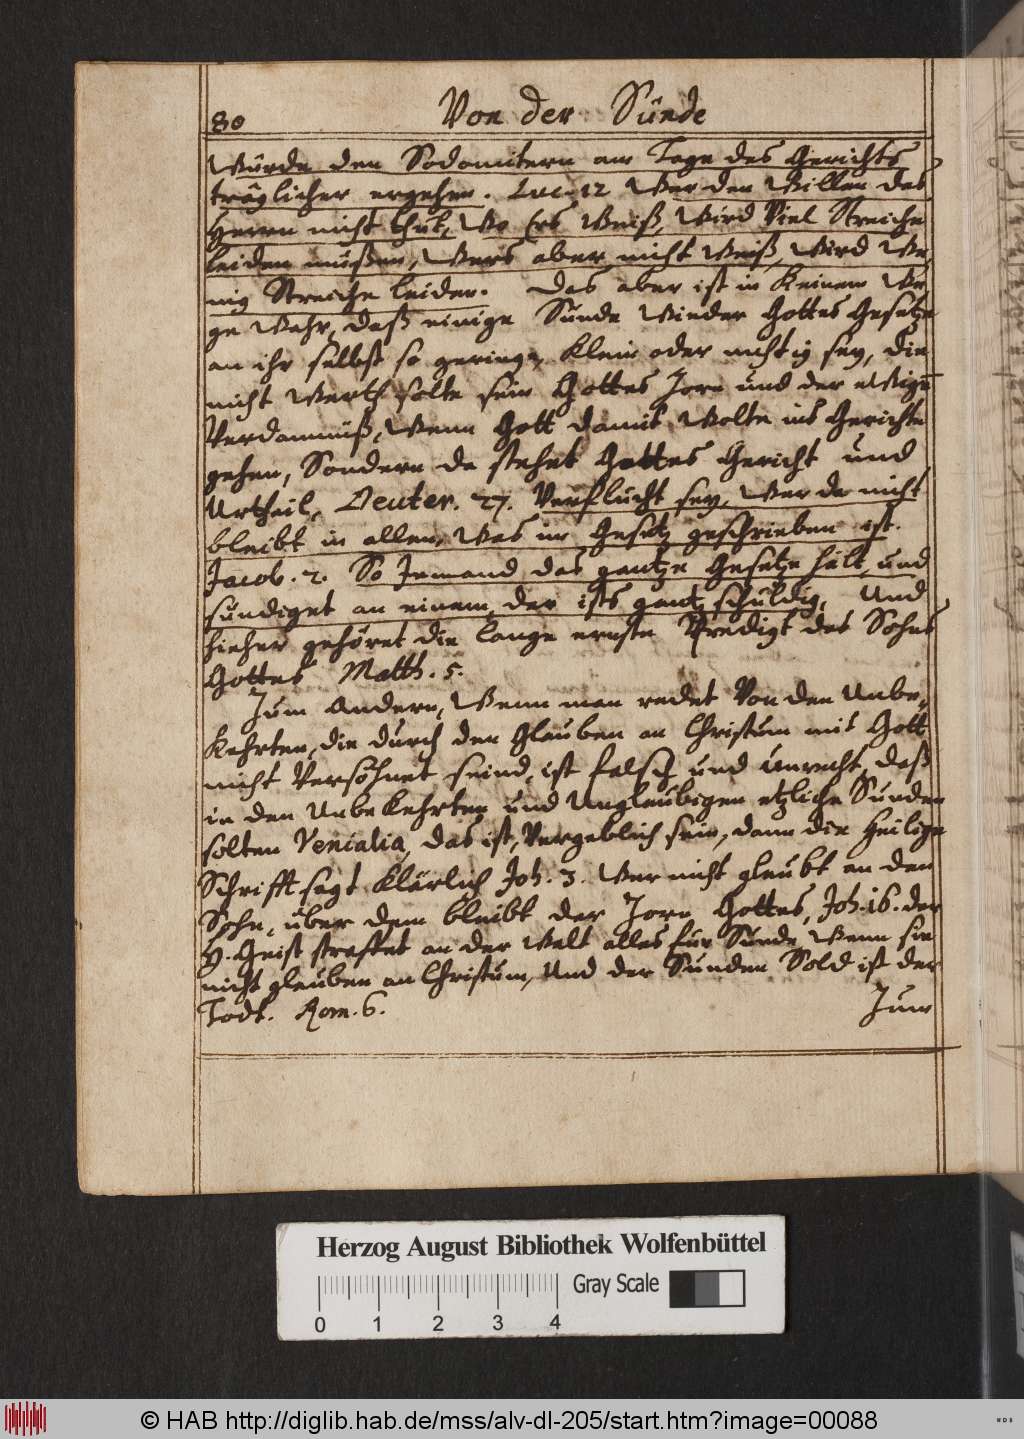 80 Von der Sünde
Würde den Sodomitern am Tage des Gerichts
träglicher ergehen. Luc. 12 Wer den Willen des
Herrn nicht thut, Wo Ers Weiß, Wird Viel Streiche
leiden müßen, Wers aber nicht Weiß, Wird We,
nig Streiche leiden. Das aber ist in Keinem We,
ge Wahr, daß einige Sünde Wieder Gottes Gesetze
an ihr selbst so geringe, Klein oder nichtig sey, die
nicht Werth solte sein Gottes Zorn und der eWigē
Verdamnüß, Wenn Gott damit Wolte ins Gerichte
gehen, Sondern da stehet Gottes Gericht und
Urtheil, Deuter. 27. Verflucht sey, Wer da nicht
bleibt in allen, Was im Gesetz geschrieben ist.
Jacob. 2. So Jemand das gantze Gesetze hält, und
sündiget an einem, der ists gantz schüldig, Und
hieher gehöret die lange ernste Predigt des Sohns
Gottes Matth. 5.
Zum Andern, Wenn man redet Von den Unbe,
Kehrten, die durch den Glauben an Christum mit Gott
nicht Versöhnet seind, ist falsch und Unrecht, daß
in den UnbeKehrten und Unglaubigen etzliche Sunden
solten Venialia, das ist, Vergeblich sein, dann die Heilige
Schrifft sagt Klärlich Joh. 3. Wer nicht gleubt an den
Sohn, über dem bleibt der Zorn Gottes, Joh. 16. der
H. Geist straffet an der Welt alles fur Sünde, Wenn sie
nicht gleuben an Christum, Und der Sunden Sold ist der
Todt. Rom. 6.
Zum
Herzog August Bibliothek Wolfenbüttel
Gray Scale
0 1 2 3 4
© HAB http://diglib.hab.de/mss/alv-dl-205/start.htm?image=00088